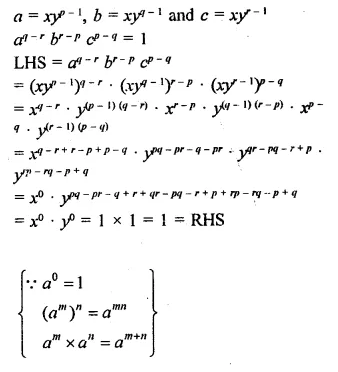 a = xy^{p – 1}, b = xy^{q – 1} and c = xy^{r – 1}
a^{q – r} b^{r – p} c^{p – q} = 1
LHS = a^{q – r} b^{r – p} c^{p – q}
= (xy^{p – 1})^{q – r} · (xy^{q – 1})^{r – p} · (xy^{r – 1})^{p – q}
= x^{q – r} · y^{(p – 1) (q – r)} · x^{r – p} · y^{(q – 1) (r – p)} · x^{p –}
^{q} · y^{(r – 1) (p – q)}
= x^{q – r + r – p + p – q} · y^{pq – pr – q – pr} · y^{qr – pq – r + p} ·
y^{rp – rq – p + q}
= x^{0} · y^{pq – pr – q + r + qr – pq – r + p + rp – rq – p + q}
= x^{0} · y^{0} = 1 × 1 = 1 = RHS
{∵ a^{0} = 1
(a^{m})^{n} = a^{mn}
a^{m} × a^{n} = a^{m+n}}